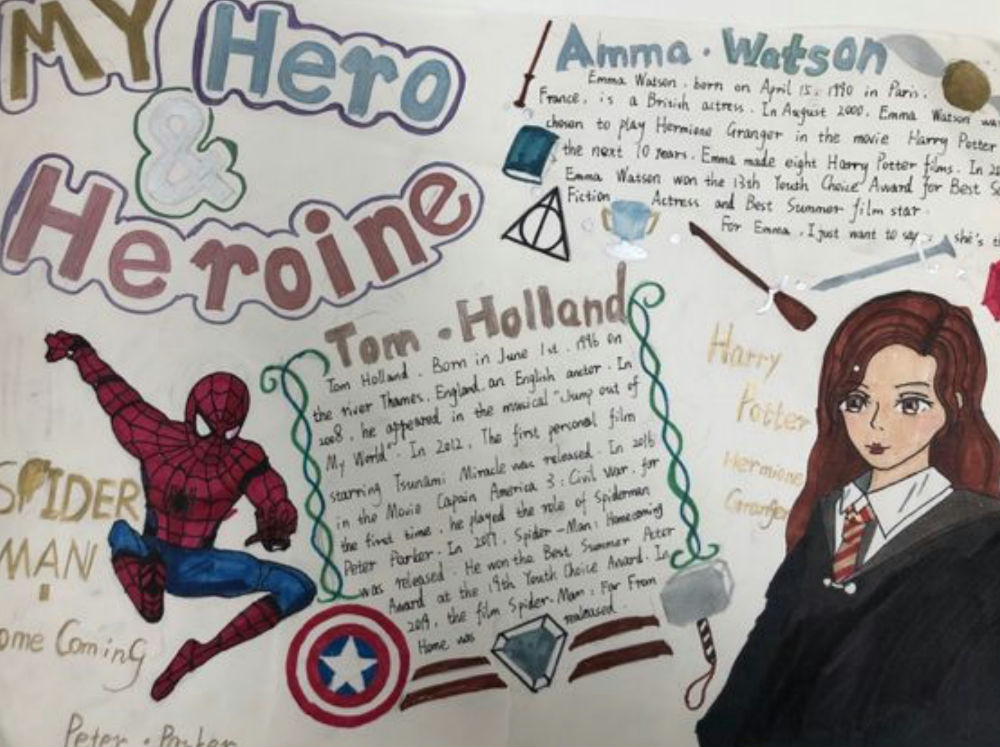 MY Hero
&
Heroine
Amma · Watson
Emma Watson, born on April 15, 1990 in Paris,
France, is a British actress. In August 2000, Emma Watson was
chosen to play Hermione Granger in the movie Harry Potter
the next 10 years. Emma made eight Harry Potter films. In
Emma Watson won the 13th Youth Choice Award for Best
Fiction Actress and Best Summer film star.
For Emma, I just want to say she's
Tom · Holland
Tom Holland. Born in June 1st. 1996 on
the river Thames, England, an English anctor. In
2008, he appeared in the musical "Jump out of
My World". In 2012, The first personal film
starring Tsunami Miracle was released. In 2016
in the Movie Capain America 3: Civil War, for
the first time, he played the role of Spiderman
Peter Parker. In 2017, Spider-Man: Homecoming
was released. He won the Best Summer Peter
Award at the 19th Youth Choice Award. In
2019, the film Spider-Man: Far From
Home was realeased.
Harry
Potter
Hermione
Granger
SPIDER
MAN
ome Coming
Peter · Parker